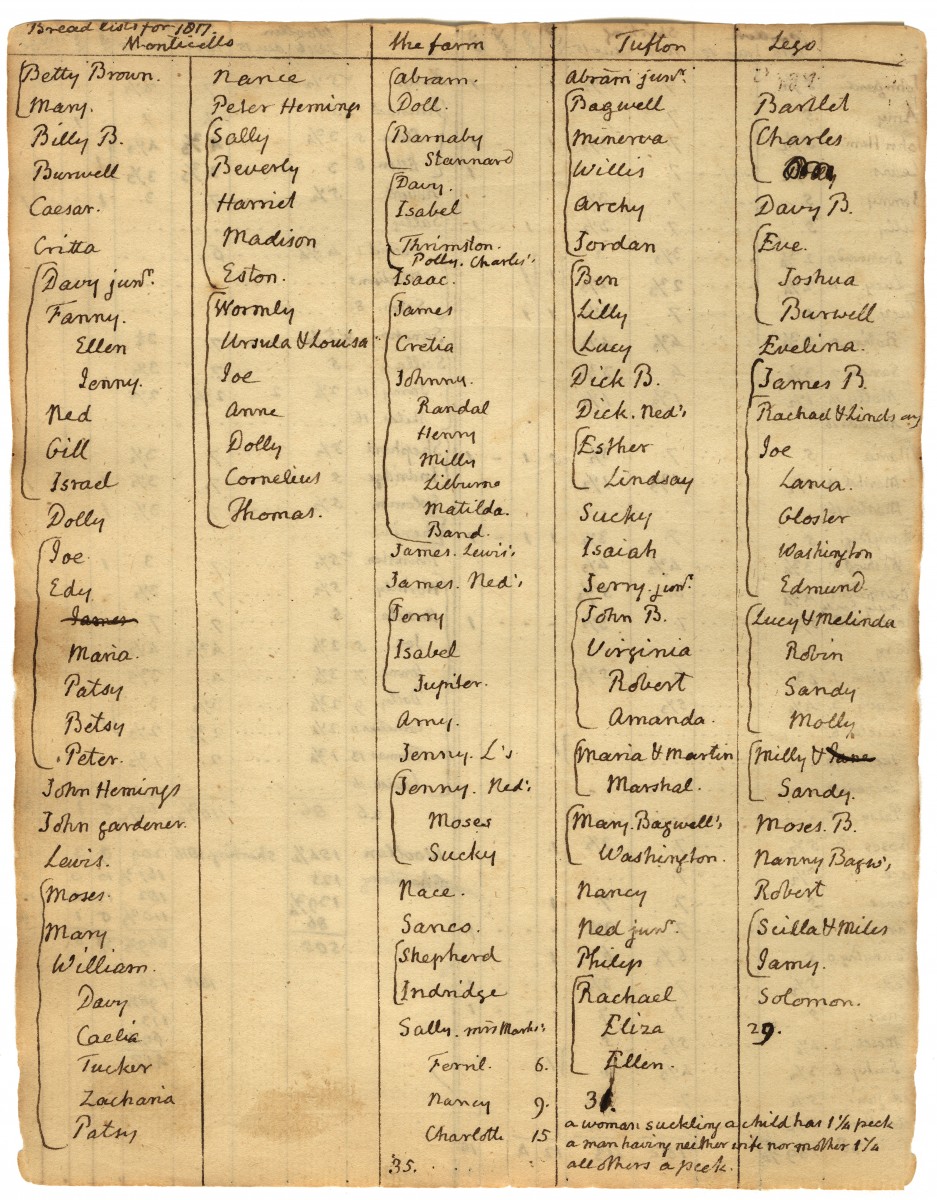 Bread lists for 1817.
Monticello
Betty Brown.
Mary.
Billy B.
Burwell
Caesar.
Critta
Davy junr.
Fanny.
Ellen
Jenny.
Ned
Gill
Israel
Dolly
Joe
Edy
James
Maria.
Patsy
Betsy
Peter.
John Hemings
John gardener.
Lewis.
Moses.
Mary
William.
Davy
Caelia
Tucker
Zacharia
Patsy
Nance
Peter Hemings
Sally
Beverly
Harriet
Madison
Eston.
Wormly
Ursula & Louisa
Joe
Anne
Dolly
Cornelius
Thomas.
the farm
Abram.
Doll.
Barnaby
Stannard
Davy.
Isabel
Thrimston.
Polly. Charles's
Isaac.
James
Cretia
Johnny.
Randal
Henry
Milly
Lilburne
Matilda.
Band.
James. Lewis's
James. Ned's
Jerry
Isabel
Jupiter.
Amy.
Jenny. L's
Jenny. Ned's
Moses
Sucky
Nace.
Sanco.
Shepherd
Indridge
Sally. mrs Marks's
Ferril. 6.
Nancy 9.
Charlotte 15
35.
Tufton
Abram junr.
Bagwell
Minerva
Willis
Archy
Jordan
Ben
Lilly
Lucy
Dick B.
Dick. Ned's
Esther
Lindsay
Sucky
Isaiah
Jerry. junr.
John B.
Virginia
Robert
Amanda.
Maria & Martin
Marshal.
Mary. Bagwell's
Washington.
Nancy
Ned junr.
Philip
Rachael
Eliza
Ellen.
Lego
Bartlet
Charles
Davy B.
Eve.
Joshua
Burwell
Evelina.
James B.
Rachael & Lindsay
Joe
Lania.
Gloster
Washington
Edmund
Lucy & Melinda
Robin
Sandy
Molly
Milly & Jane
Sandy.
Moses. B.
Nanny Bagw's
Robert
Scilla & Miles
Jamy.
Solomon.
29.
a woman suckling a child has 1¼ peck
a man having neither wife nor mother 1¼
all others a peck.